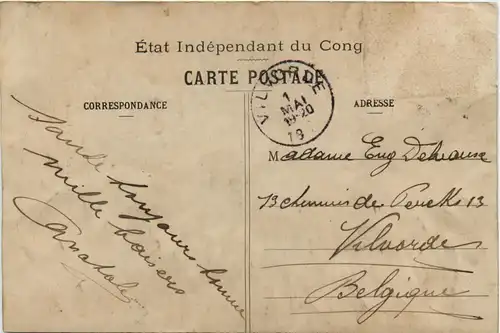 État Indépendant du Cong
CARTE POSTALE
CORRESPONDANCE
ADRESSE
VILVORDE
1
MAI
19-20
19
Santé toujours bonne
mille baisers
Anatole
Madame Eug
13 chemin de 13
Vilvorde
Belgique